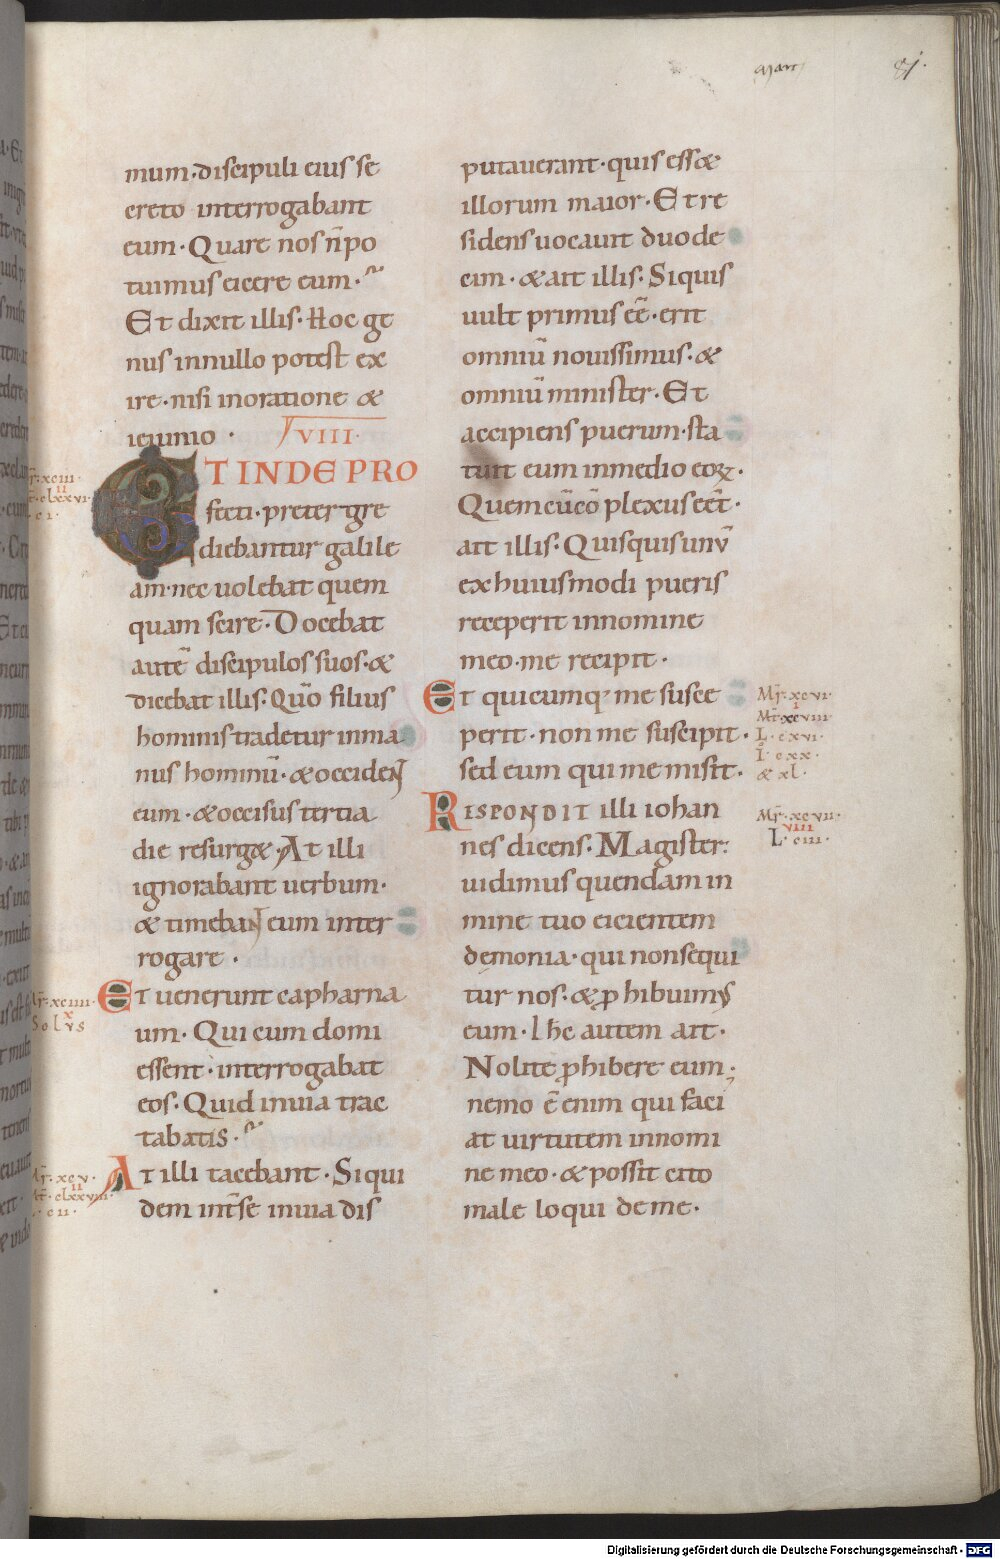 Marci
81.
mum·discipuli eius se
creto interrogabant
eum·Quare nos ñ po
tuimus eicere eum·
Et dixit illis·Hoc ge
nus in nullo potest ex
ire·nisi in oratione &
ieiunio·
VIII·
ET INDE PRO
fecti·preter gre
diebantur galile
am·nec uolebat quem
quam scire·Docebat
autē discipulos suos·&
dicebat illis·Quō filius
hominis tradetur in ma
nus hominū·& occident
eum·& occisus tertia
die resurg&·At illi
ignorabant uerbum·
& timebant eum inter
rogare·
Et uenerunt capharna
um·Qui cum domi
essent·interrogabat
eos·Quid in uia trac
tabatis·
At illi tacebant·Siqui
dem int̄ se in uia dis
putauerant·quis ess&
illorum maior·Et re
sidens uocauit duode
cim·& ait illis·Siquis
uult primus eē·erit
omniū nouissimus·&
omniū minister·Et
accipiens puerum·sta
tuit eum in medio eoꝝ·
Quem cū cō plexus eēt·
ait illis·Quisquis unū
ex huiusmodi pueris
receperit in nomine
meo·me recipit·
Et quicumq; me susce
perit·non me suscipit·
sed eum qui me misit·
RESPONDIT illi iohan
nes dicens·Magister:
uidimus quendam in
mine tuo eicientem
demonia·qui non sequi
tur nos·& ꝓhibuimus
eum·Ihc autem ait·
Nolite ꝓhibere eum·
nemo ē enim qui faci
at uirtutem in nomi
ne meo·& possit cito
male loqui de me·
xciii
clxxvi
ci·
Mr̄·xciiii·
x
Solus
Mr̄·xcv·
ii
Mt̄·clxxviii·
cii·
Mr̄·xcvi·
i
Mt̄·xcviii·
L·cxvi·
I·cxx·
& xl·
Mr̄·xcvii·
viii
L·ciii·
Digitalisierung gefördert durch die Deutsche Forschungsgemeinschaft · DFG